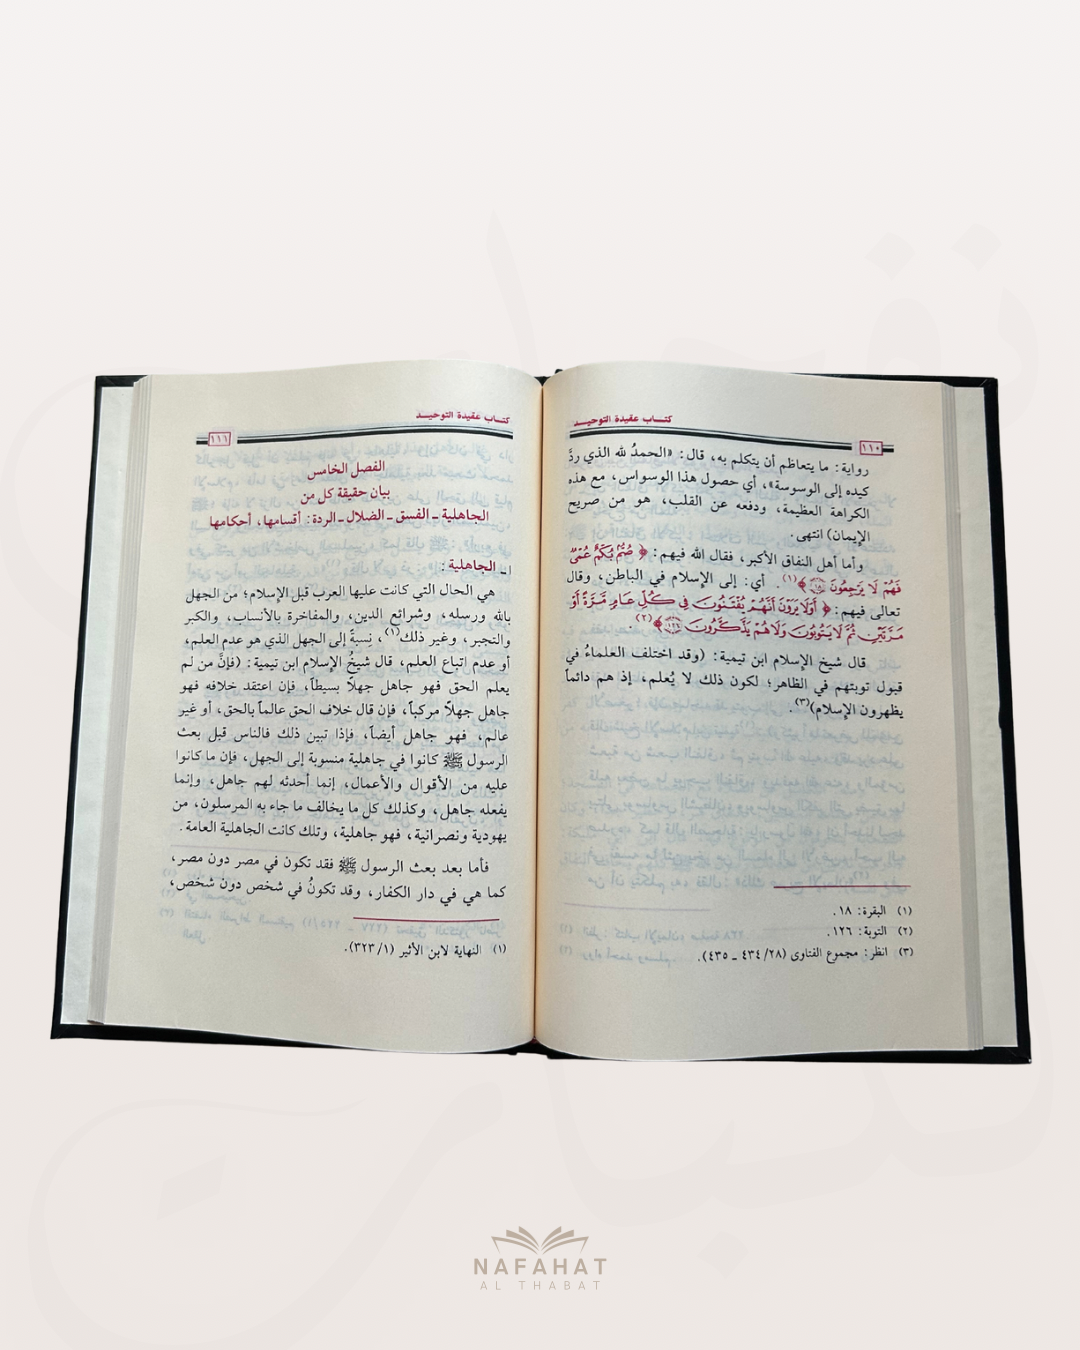 كتاب عقيدة التوحيد
١١٠
رواية: ما يتعاظم أن يتكلم به، قال: «الحمدُ لله الذي ردَّ
كيده إلى الوسوسة»، أي حصول هذا الوسواس، مع هذه
الكراهة العظيمة، ودفعه عن القلب، هو من صريح
الإيمان) انتهى.
وأما أهل النفاق الأكبر، فقال الله فيهم: ﴿ صُمٌّ بُكْمٌ عُمْىٌ
فَهُمْ لَا يَرْجِعُونَ ﴾(١). أي: إلى الإسلام في الباطن، وقال
تعالى فيهم: ﴿ أَوَلَا يَرَوْنَ أَنَّهُمْ يُفْتَنُونَ فِى كُلِّ عَامٍ مَّرَّةً أَوْ
مَرَّتَيْنِ ثُمَّ لَا يَتُوبُونَ وَلَا هُمْ يَذَّكَّرُونَ ١٢٦ ﴾(٢).
قال شيخ الإسلام ابن تيمية: (وقد اختلف العلماءُ في
قبول توبتهم في الظاهر؛ لكون ذلك لا يُعلم، إذ هم دائماً
يظهرون الإسلام)(٣).
(١) البقرة: ١٨.
(٢) التوبة: ١٢٦.
(٣) انظر: مجموع الفتاوى (٢٨/ ٤٣٤ ـ ٤٣٥).
كتاب عقيدة التوحيد
١١١
الفصل الخامس
بيان حقيقة كل من
الجاهلية ـ الفسق ـ الضلال ـ الردة: أقسامها، أحكامها
١ـ الجاهلية:
هي الحال التي كانت عليها العرب قبل الإسلام؛ من الجهل
بالله ورسله، وشرائع الدين، والمفاخرة بالأنساب، والكبر
والتجبر، وغير ذلك(١)، نِسبةً إلى الجهل الذي هو عدم العلم،
أو عدم اتباع العلم، قال شيخُ الإسلام ابن تيمية: (فإنَّ من لم
يعلم الحق فهو جاهل جهلاً بسيطاً، فإن اعتقد خلافه فهو
جاهل جهلاً مركباً، فإن قال خلاف الحق عالماً بالحق، أو غير
عالم، فهو جاهل أيضاً، فإذا تبين ذلك فالناس قبل بعث
الرسول ﷺ كانوا في جاهلية منسوبة إلى الجهل، فإن ما كانوا
عليه من الأقوال والأعمال، إنما أحدثه لهم جاهل، وإنما
يفعله جاهل، وكذلك كل ما يخالف ما جاء به المرسلون، من
يهودية ونصرانية، فهو جاهلية، وتلك كانت الجاهلية العامة.
فأما بعد بعث الرسول ﷺ فقد تكون في مصر دون مصر،
كما هي في دار الكفار، وقد تكونُ في شخص دون شخص،
(١) النهاية لابن الأثير (١/ ٣٢٣).
NAFAHAT
AL THABAT